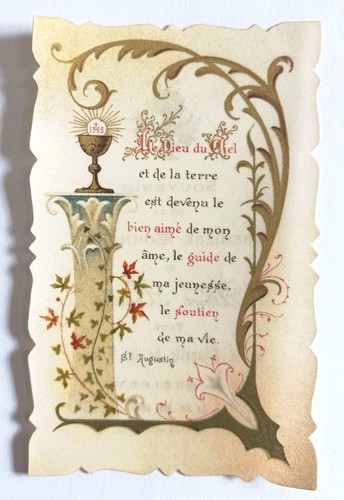 IHS
Le Dieu du Ciel
et de la terre
est devenu le
bien aimé de mon
âme, le guide de
ma jeunesse,
le soutien
de ma vie.
St Augustin
SOUVENIR